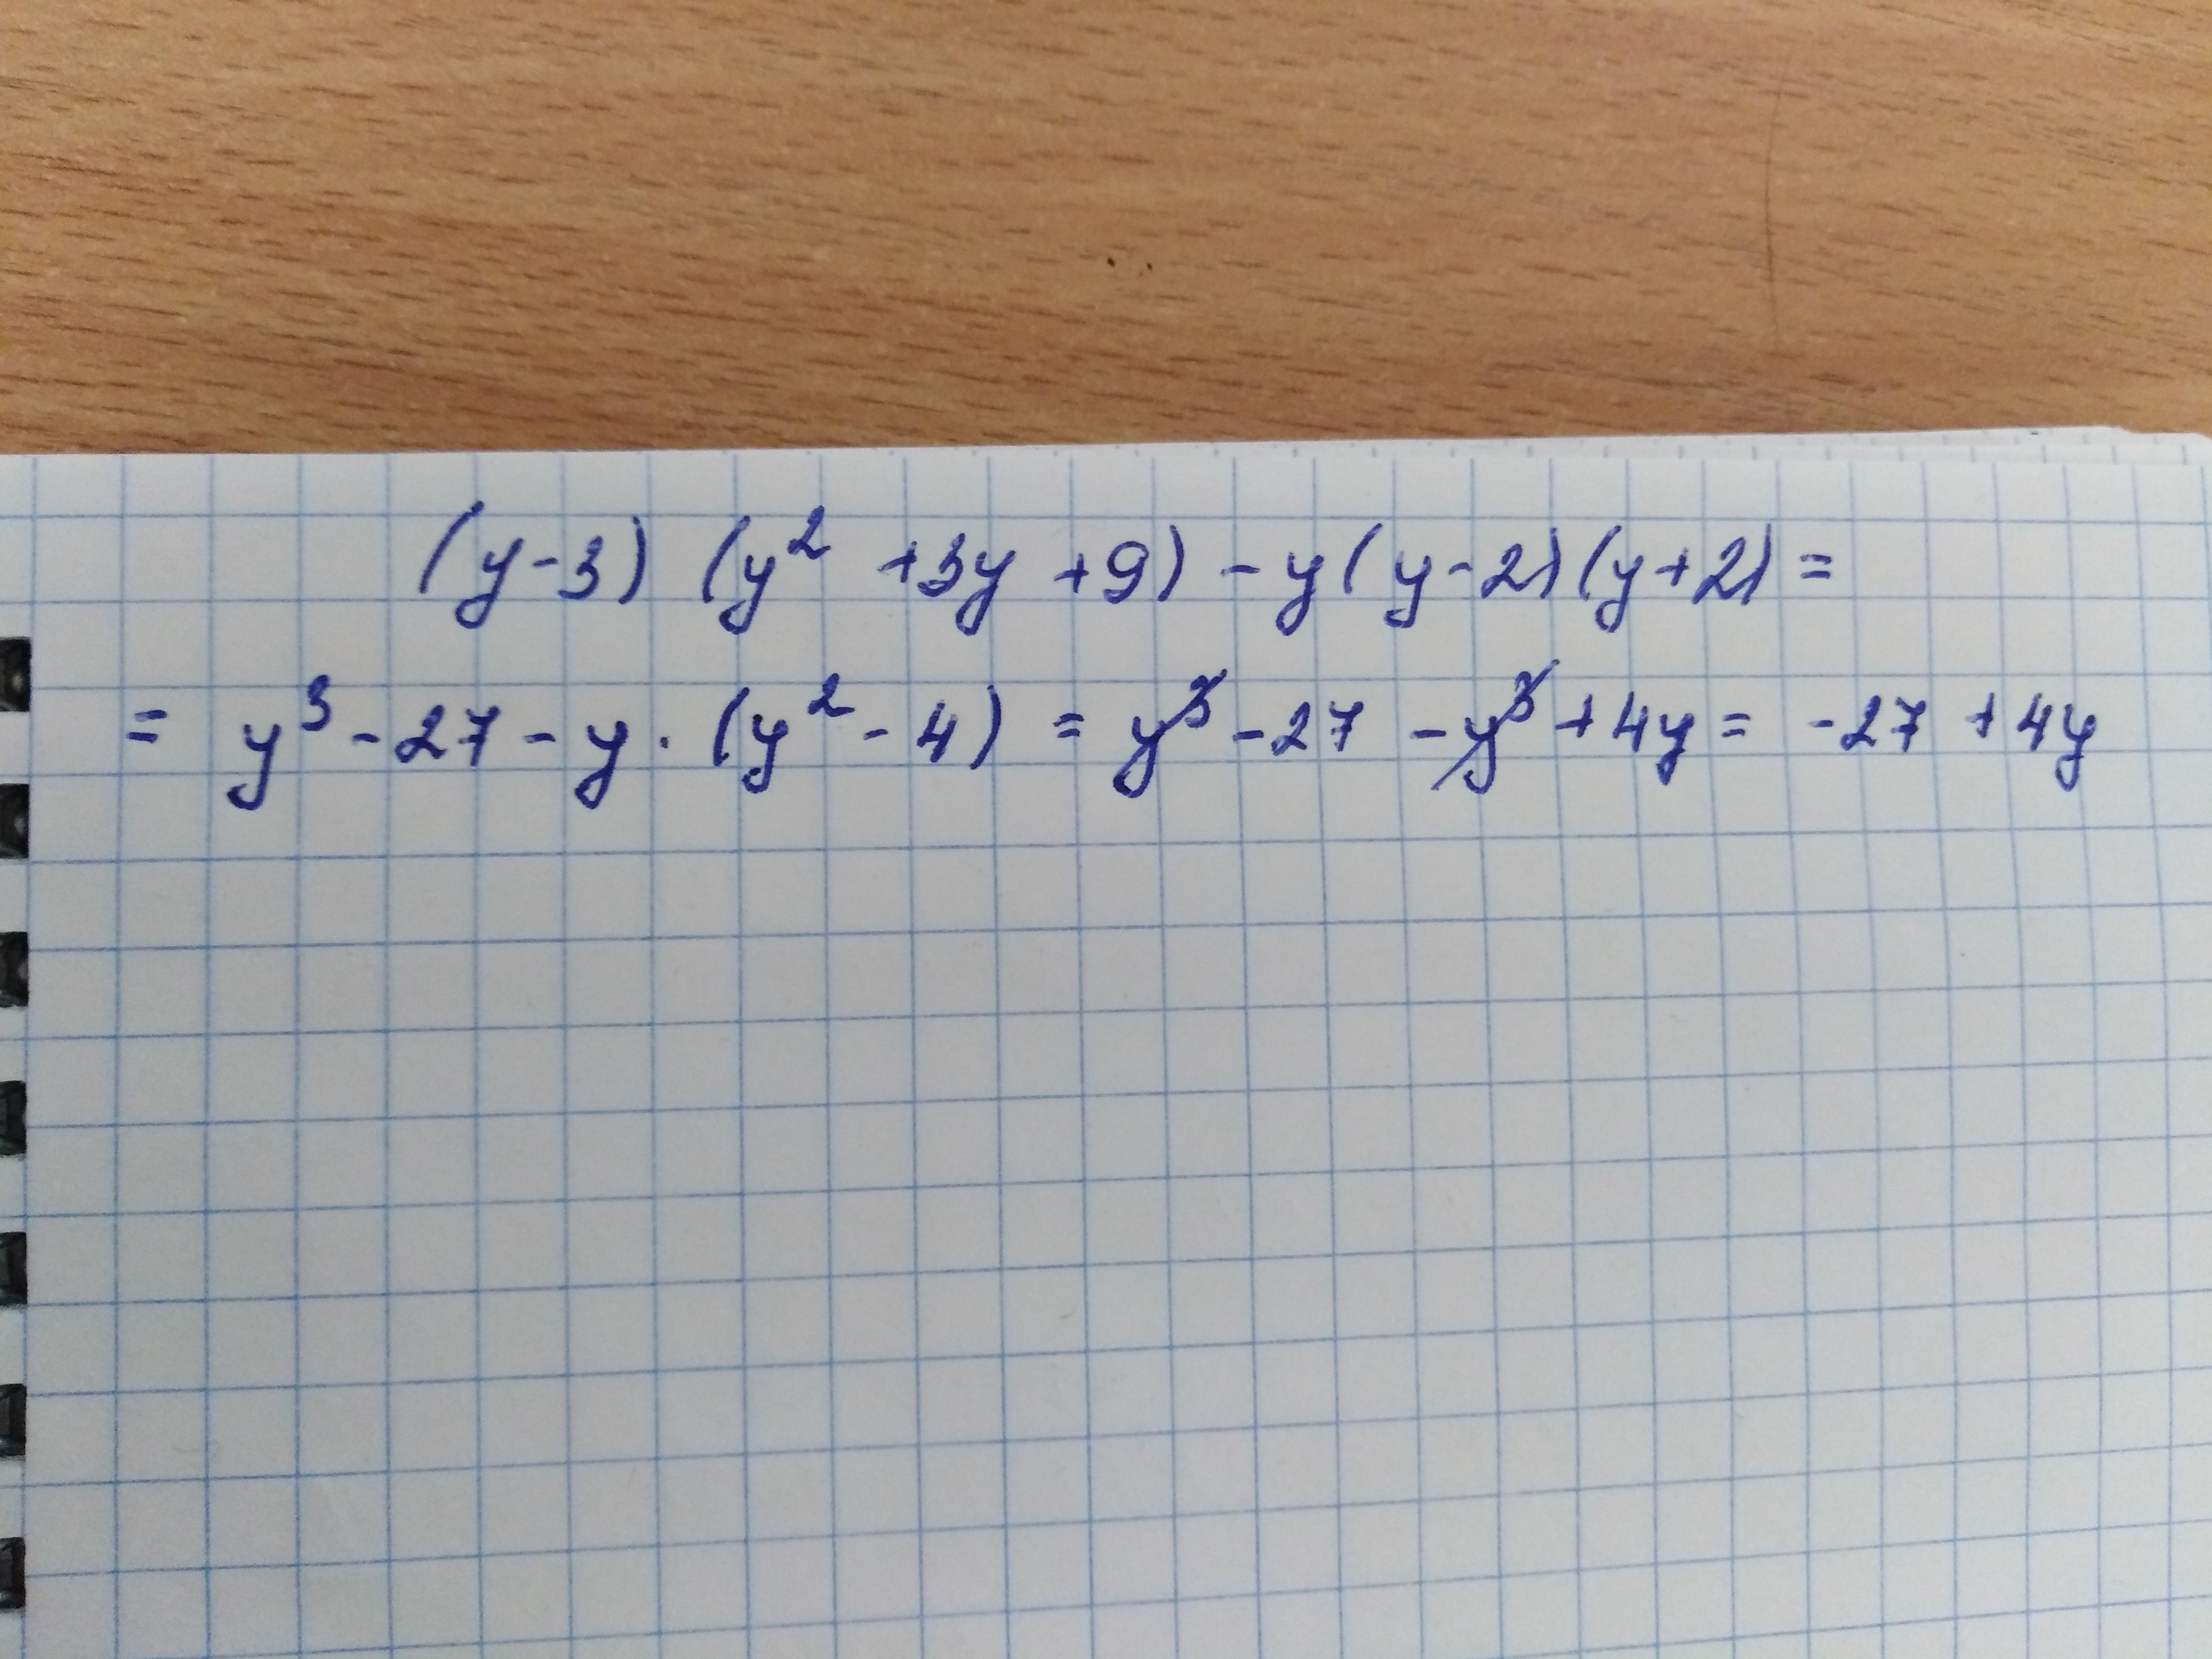 (y-3) (y² +3y +9) - y(y-2)(y+2) =
= y³ - 27 - y · (y² - 4) = y³ - 27 - y³ + 4y = -27 + 4y